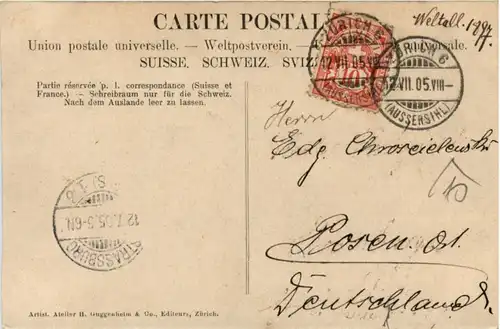 CARTE POSTALE
Weltall. 1897.
Union postale universelle. — Weltpostverein. —
SUISSE. SCHWEIZ. SVIZ
ZÜRICH 6
12.VII.05.VIII—
(AUSSERSIHL)
Partie réservée p. l. correspondance (Suisse et
France.) — Schreibraum nur für die Schweiz.
Nach dem Auslande leer zu lassen.
Herrn
Edg.
Posen. O1.
Deutschland.
STRASSBURG
12.7.05.5-6N.
Artist. Atelier H. Guggenheim & Co., Editeurs, Zürich.